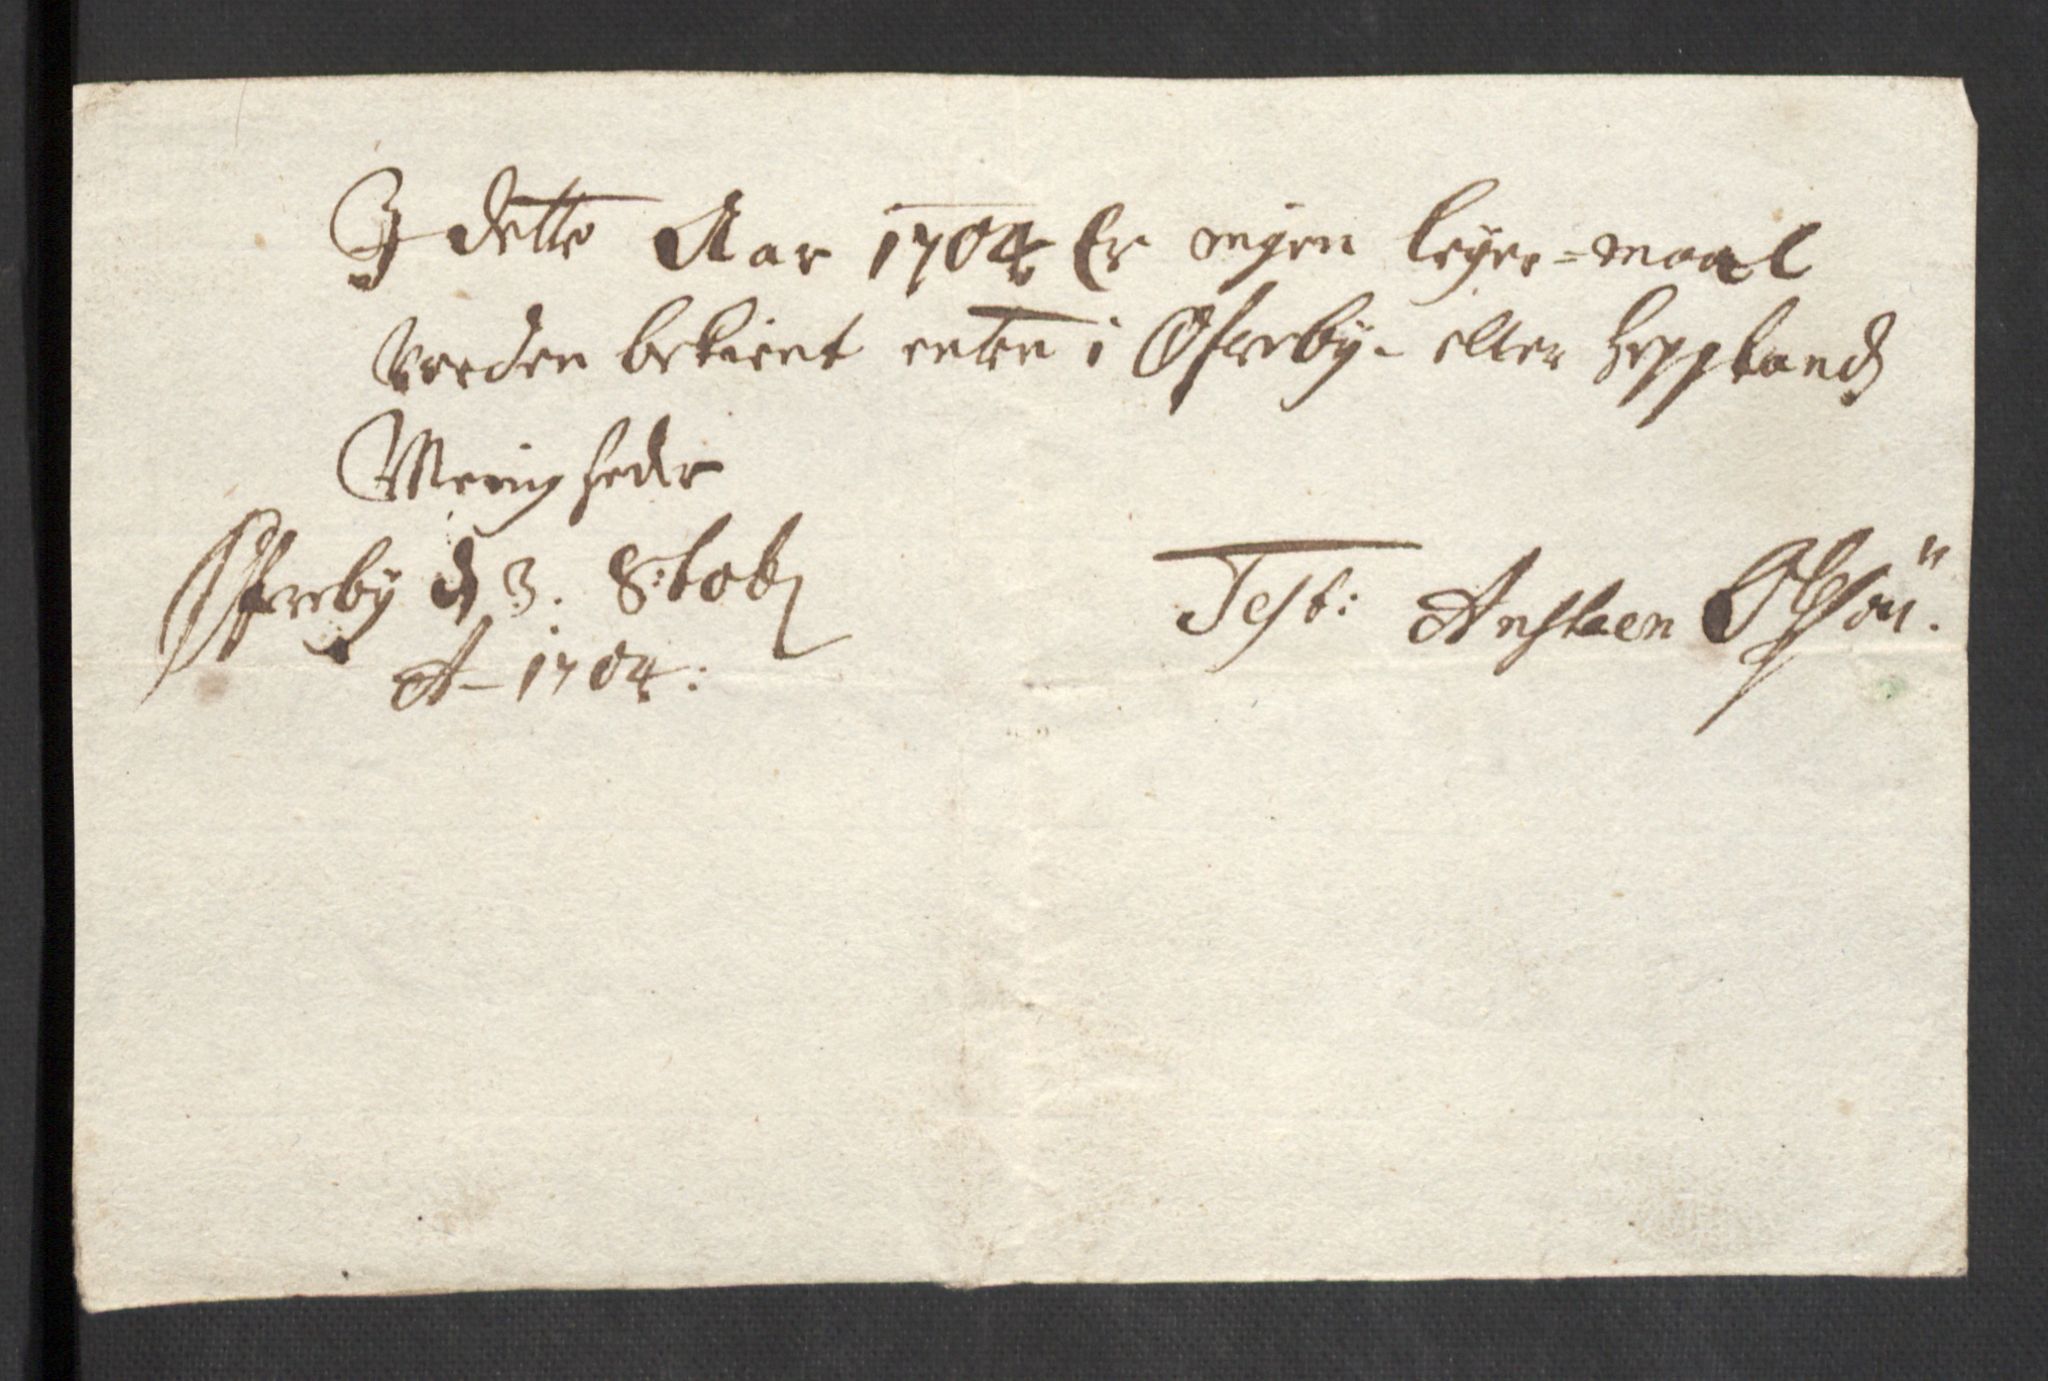 I dette Aar 1704 Er ingen leyer=maal
vorden bekient enten i Øfreby- eller Heggelands
Menigheder
Øfreby d 3. 8:tobr
A- 1704:
Test: Anstaen Olsøn.